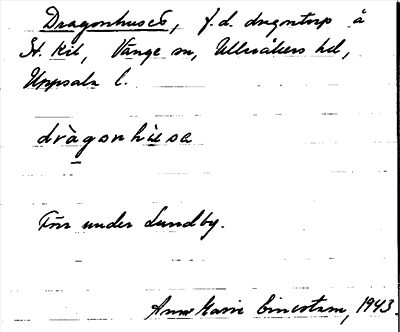 Dragonhuset, f.d. dragontorp å
St. Kil, Vänge sn, Ulleråkers hd,
Uppsala l.
dràgonhùsɛ
Förr under Lundby.
Anne Marie 1943